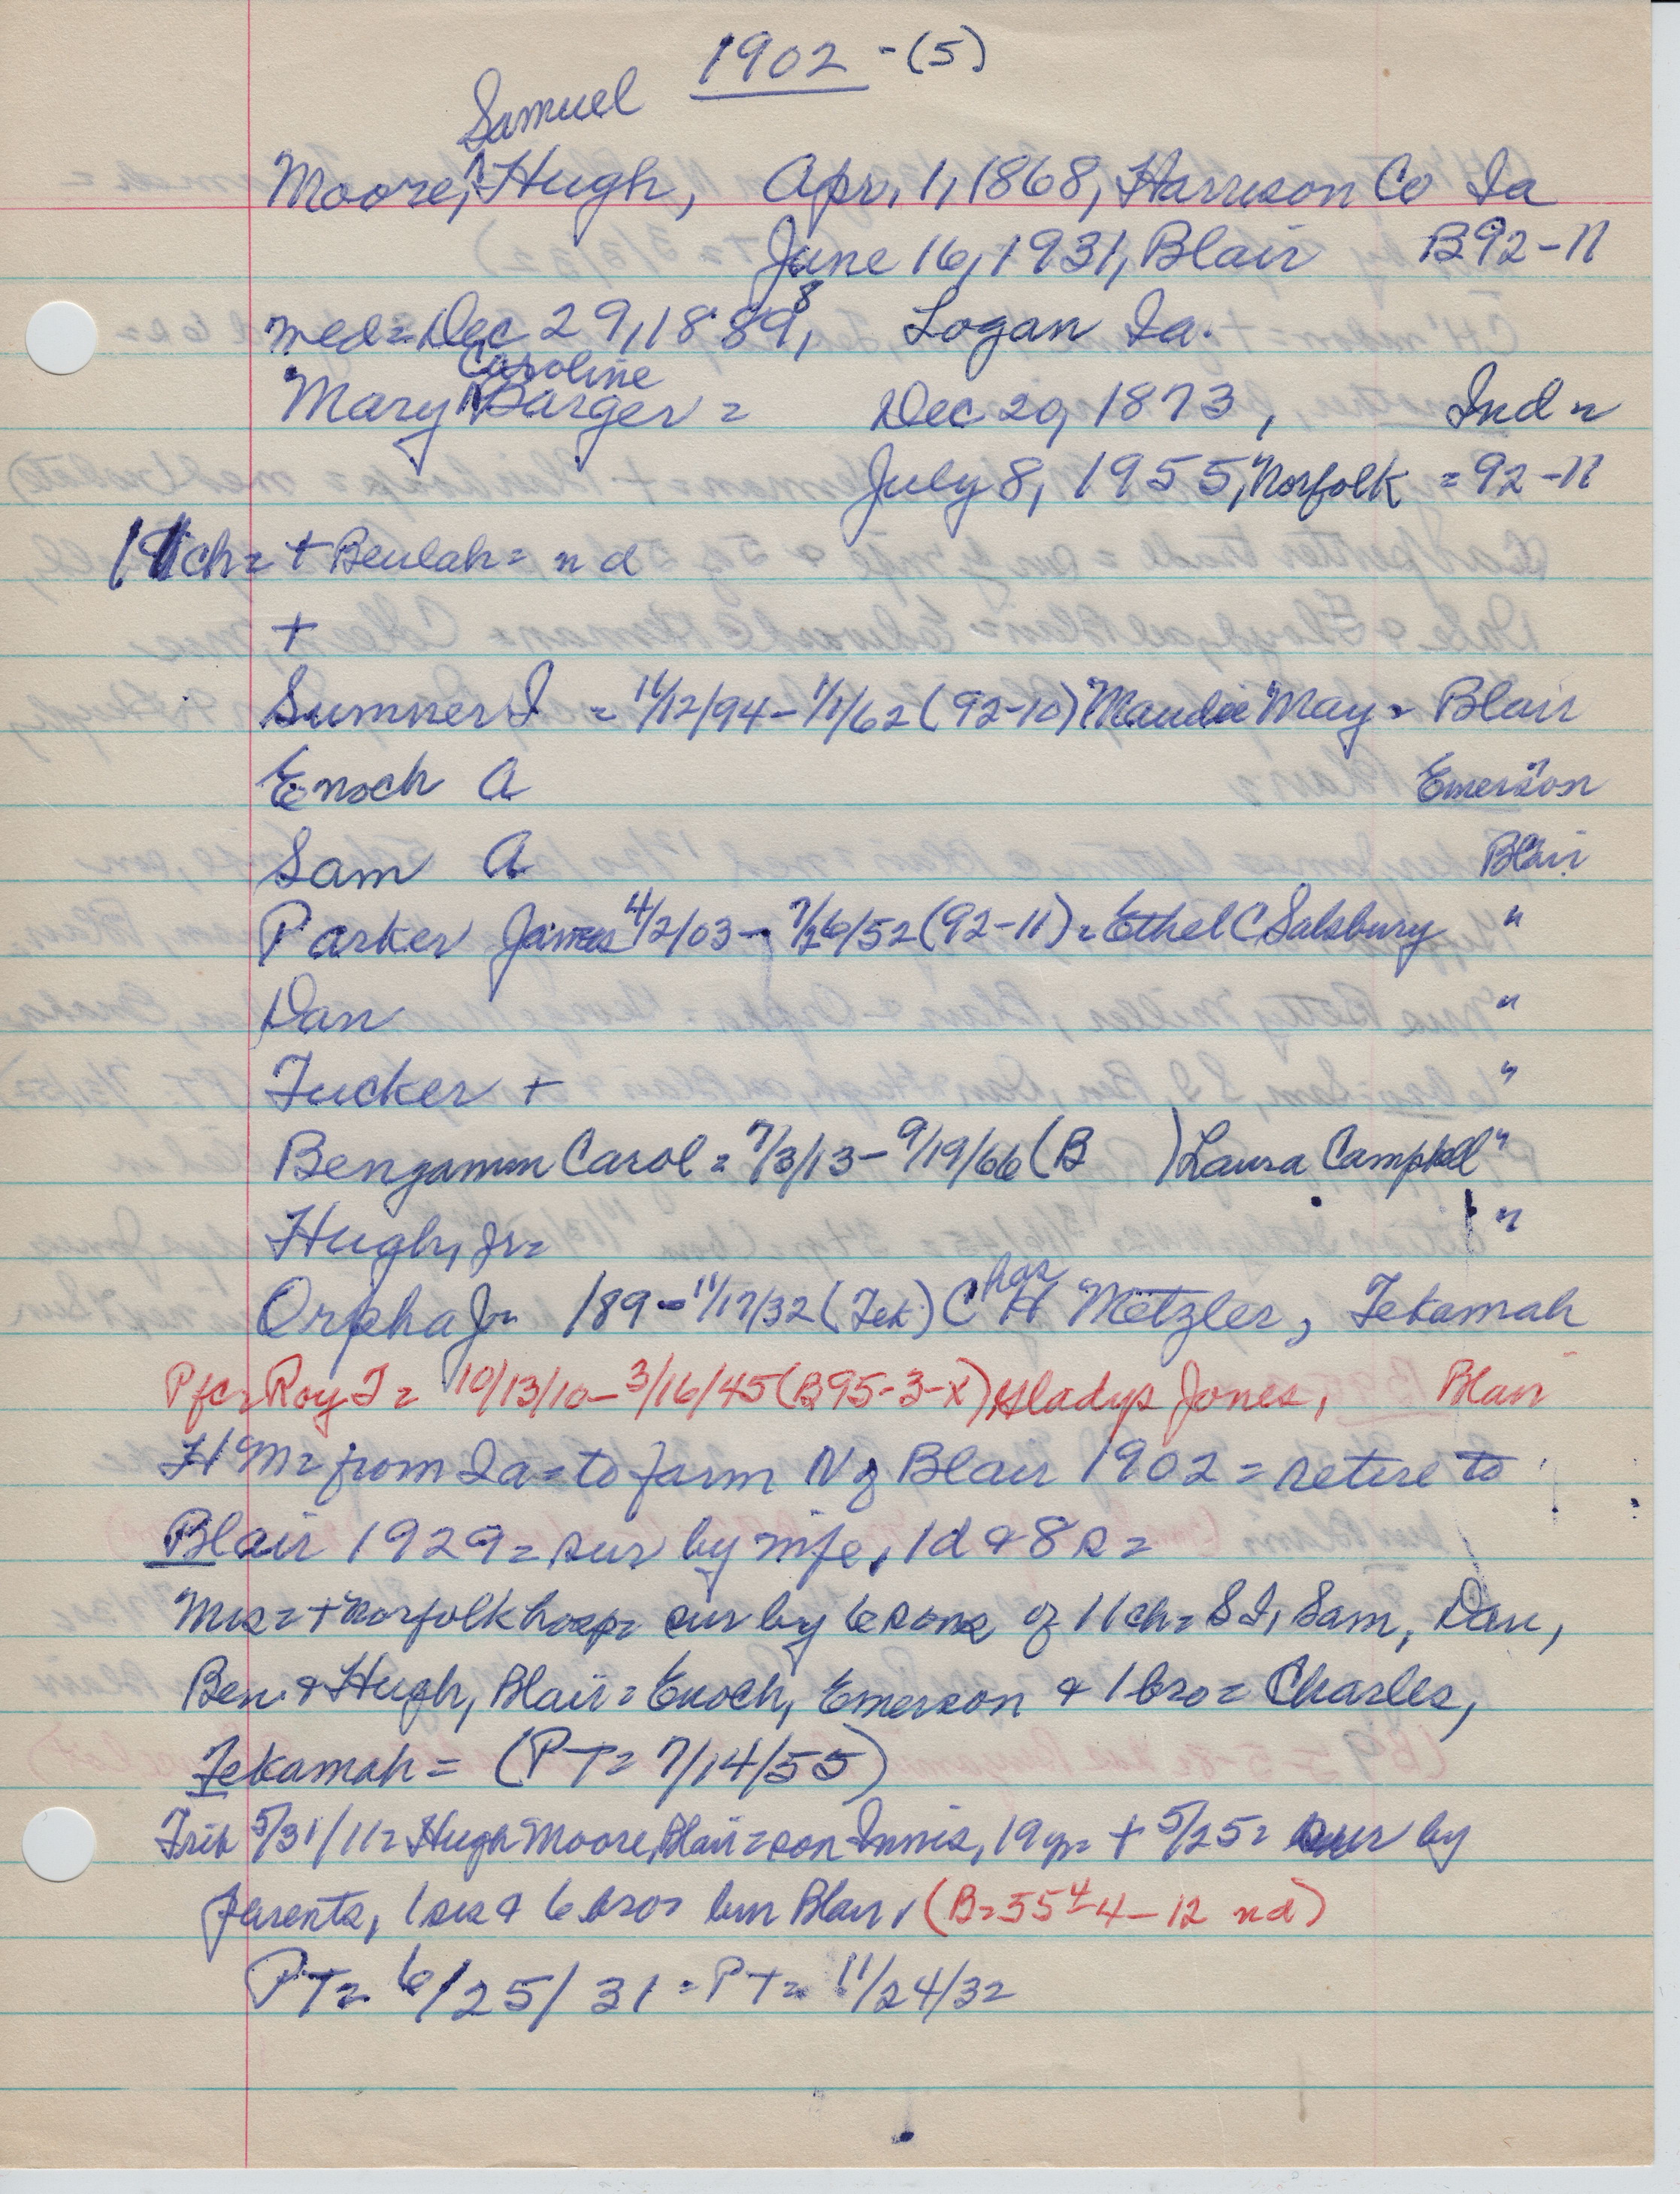 1902 - (5)
Samuel
Moore, ^ Hugh, Apr. 1, 1868, Harrison Co Ia
June 16, 1931, Blair B92-11
med = Dec 29, 1889, 8 Logan Ia.
Caroline
Mary ^ Barger = Dec 29, 1873, Ind =
July 8, 1955, Norfolk = 92-11
11 ch = + Beulah = nd
+
Sumner I = 11/12/94 - 1/1/62 (92-10) "Maudie" May = Blair
Enoch A Emerson
Sam A Blair
Parker James 4/2/03 - 7/26/52 (92-11) = Ethel C Salsbury "
Dan "
Tucker + "
Bengamin Carol = 7/3/13 - 9/19/66 (B ) Laura Campbell "
Hugh, Jr = "
Orpha J = 189 - 11/17/32 (Tek) Chas H Metzler, Tekamah
Pfc = Roy T = 10/13/10 - 3/16/45 (B95-3-X) Gladys Jones, Blair
H M = from Ia = to farm N of Blair 1902 = retire to
Blair 1929 = sur by wife, 1 d & 8 s =
Mrs = + Norfolk hosp = sur by 6 sons of 11 ch = S I, Sam, Dan,
Ben & Hugh, Blair = Enoch, Emerson & 1 bro = Charles,
Tekamah = (PT = 7/14/55)
Trib 5/31/11 = Hugh Moore, Blair = son Innis, 19 yr = + 5/25 = sur by
parents, 1 sis & 6 bro = bur Blair, (B = 55 4 4 - 12 nd)
PT = 6/25/31 = PT = 11/24/32